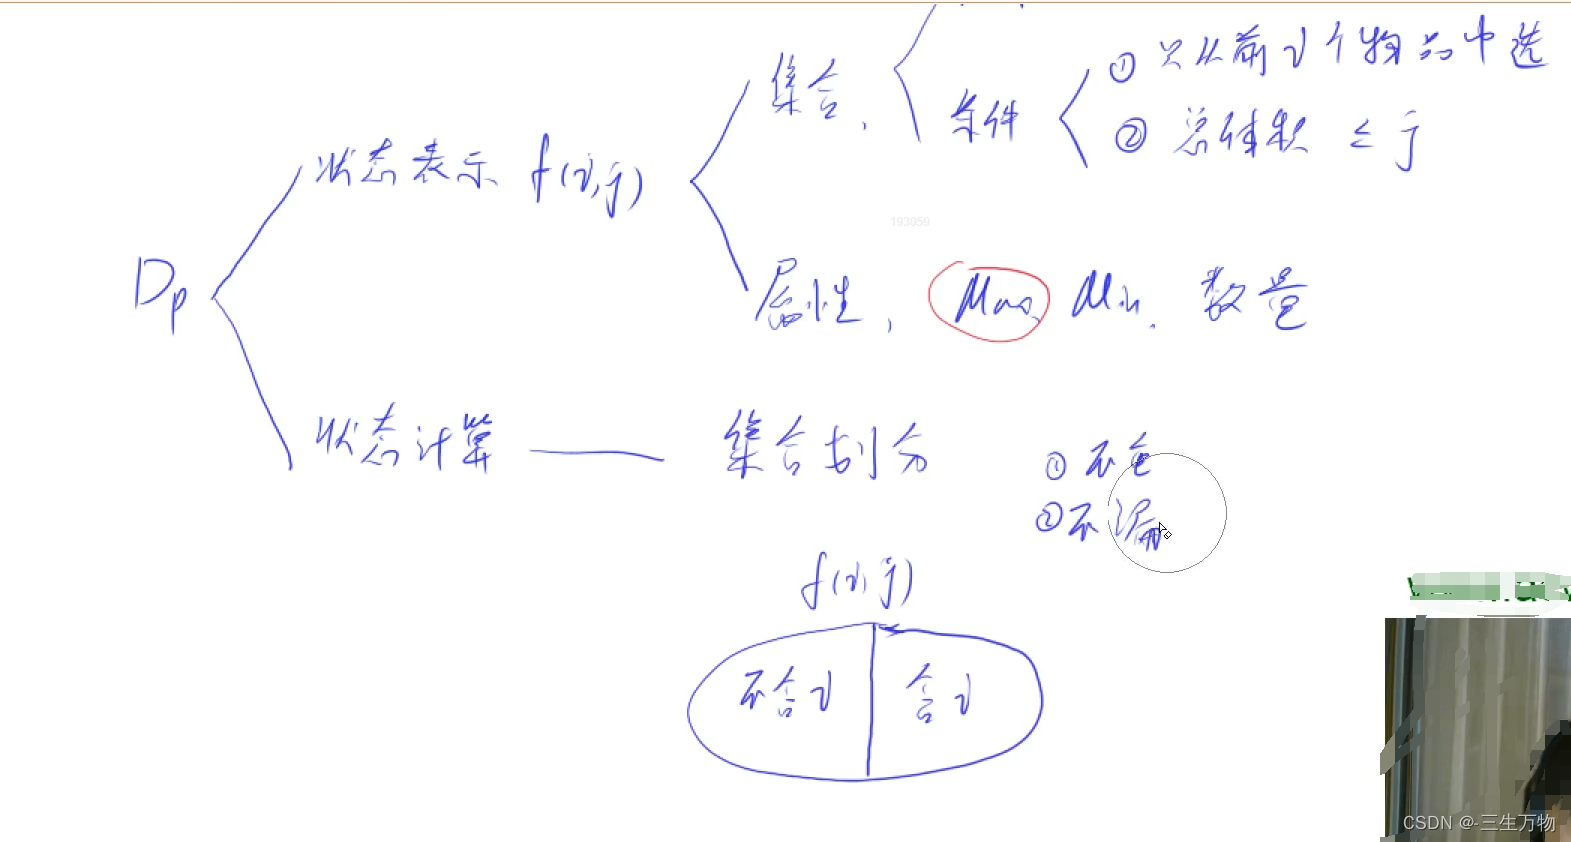 集合,
条件
① 只从前i个物品中选
② 总体积 ≤ j
状态表示 f(i,j)
193059
Dp
属性, Max, Min, 数量
状态计算
集合划分
① 不
② 不漏
f(i,j)
不含i
含i
CSDN @-三生万物